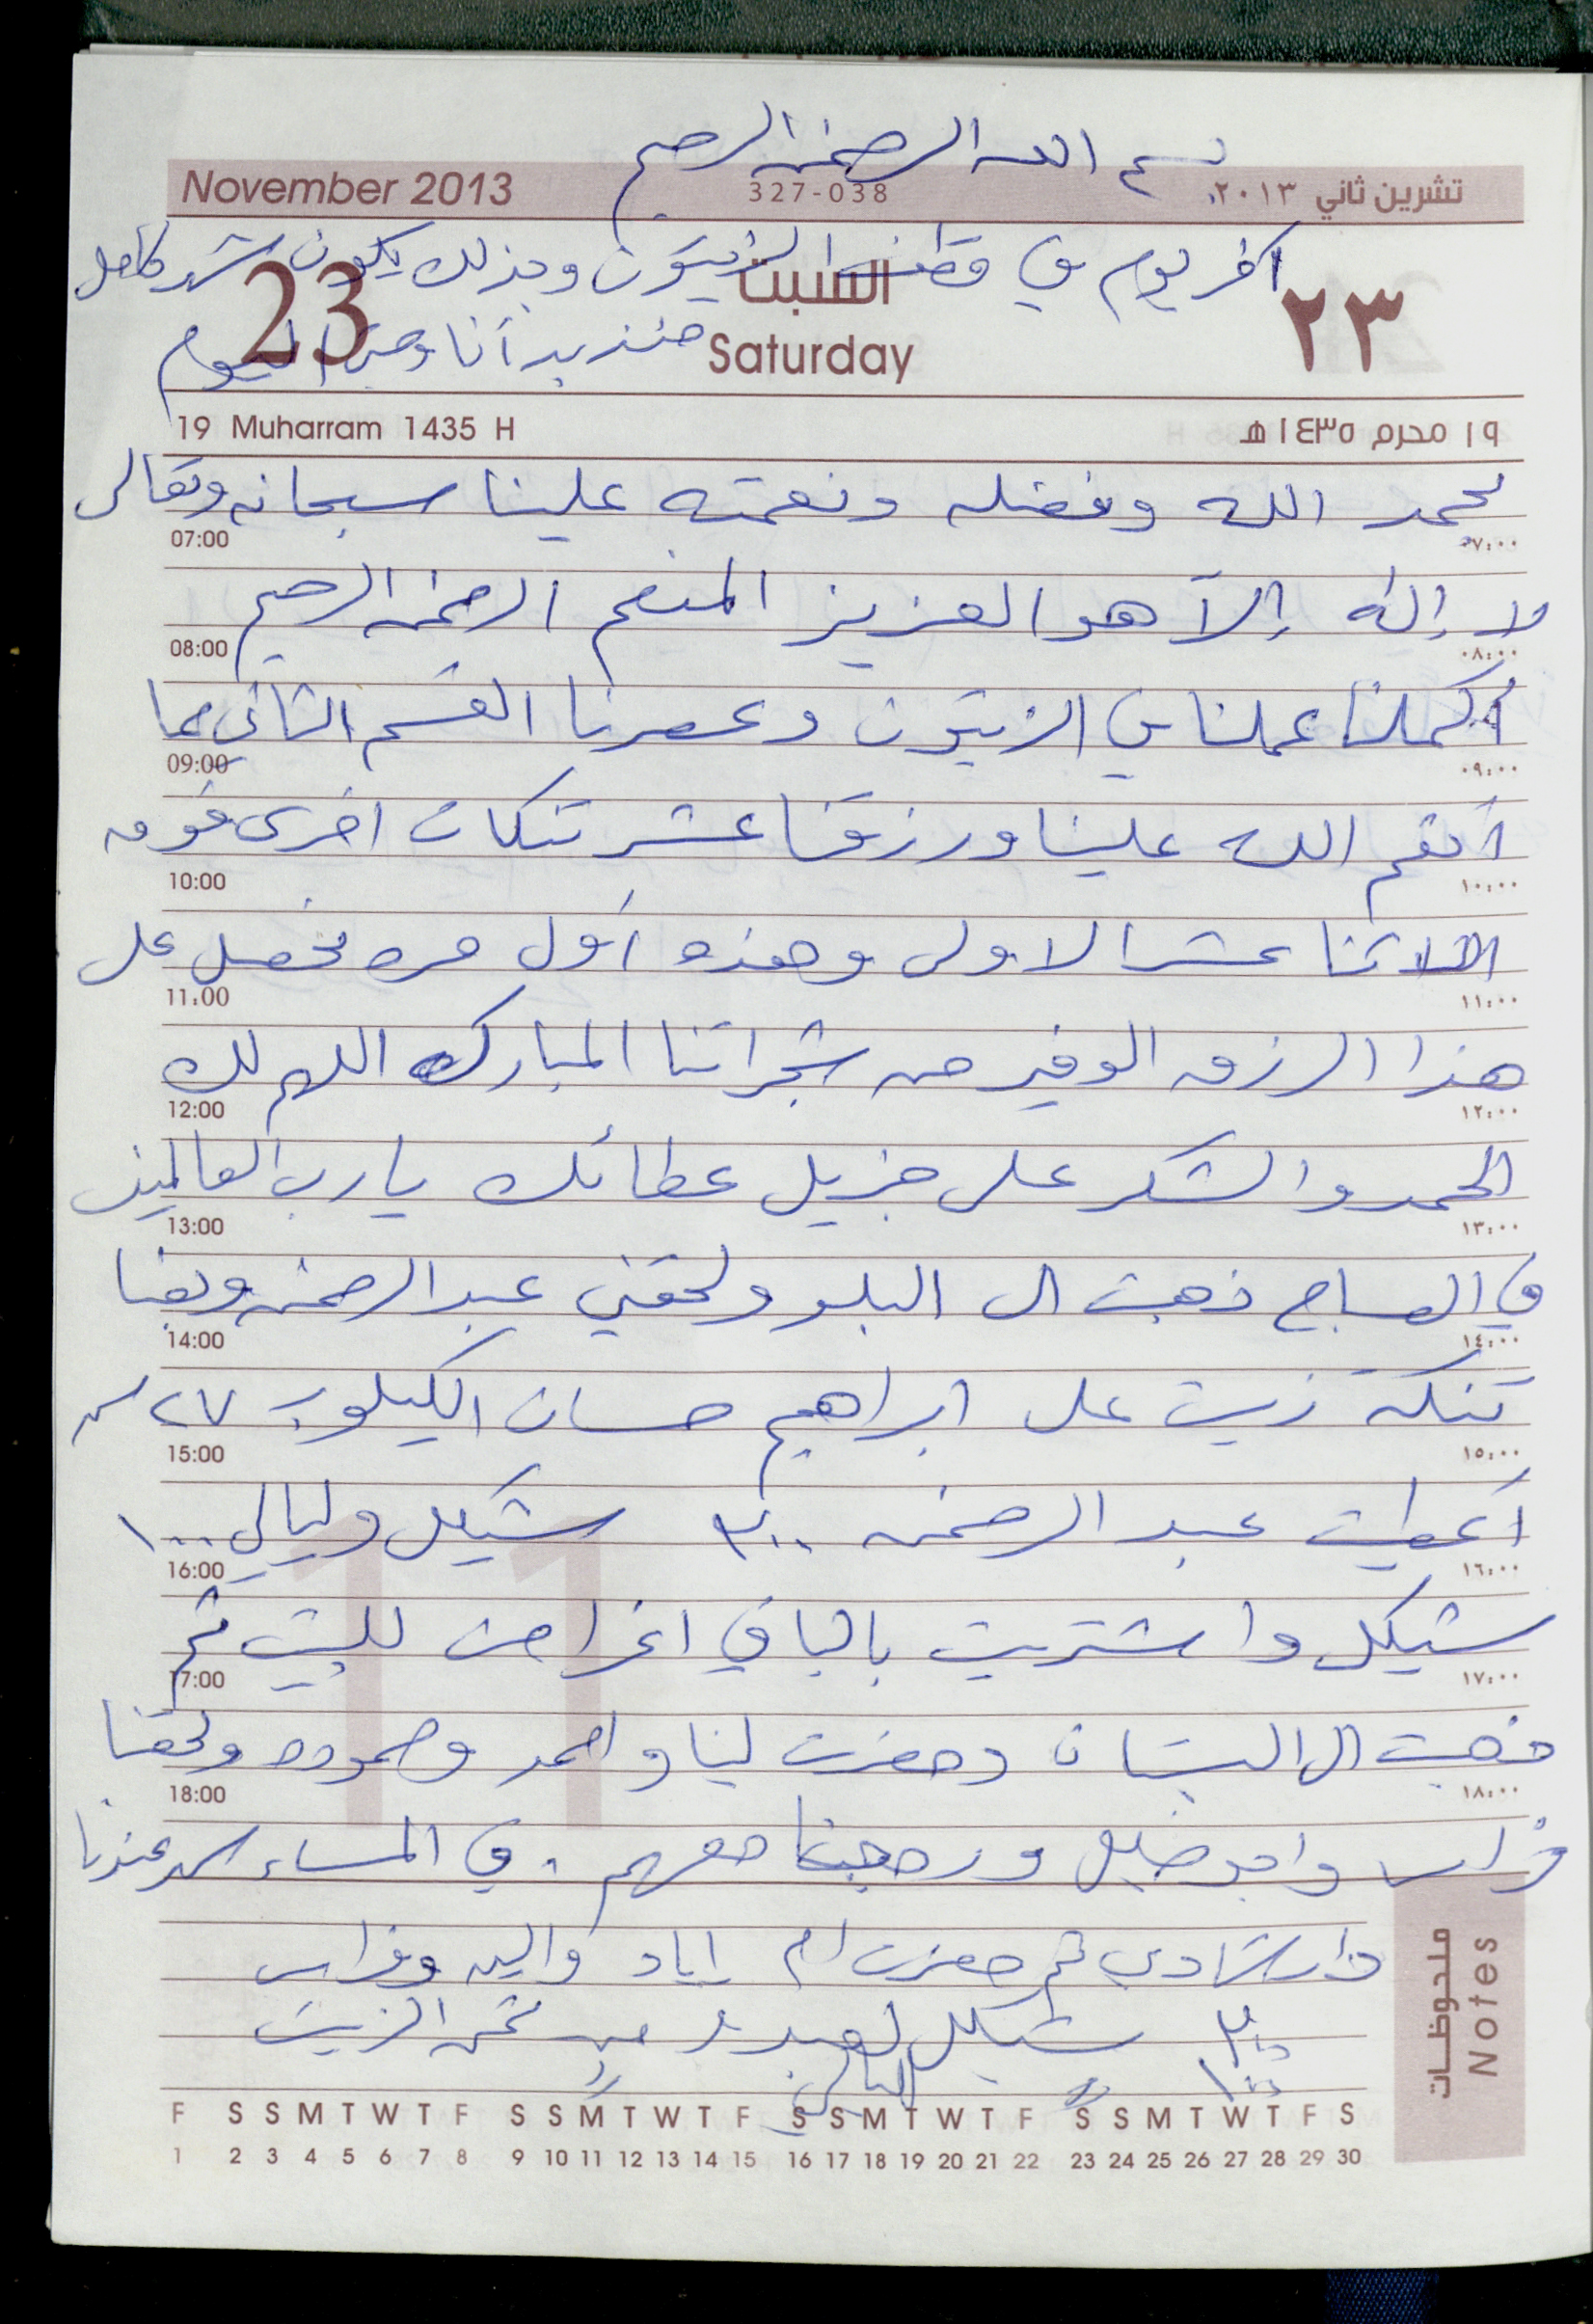 بسم الله الرحمن الرحيم
November 2013 327-038 تشرين ثاني ٢٠١٣
اخر يوم في قطف الزيتون وبذلك يكون شهر كامل
23 السبت ٢٣
منذ بدأنا وحتى اليوم
Saturday
19 Muharram 1435 H ١٩ محرم ١٤٣٥ هـ
بحمد الله وفضله ونعمته علينا سبحانه وتعالى
07:00 ٠٧:٠٠
لا إله إلا هو العزيز المنعم الرحمن الرحيم
08:00 ٠٨:٠٠
أكملنا عملنا في الزيتون وعصرنا القسم الثاني مما
09:00 ٠٩:٠٠
أنعم الله علينا ورزقنا عشر تنكات اخرى فوق
10:00 ١٠:٠٠
الاثنا عشر الاولى وهذه أول مره نحصل على
11:00 ١١:٠٠
هذا الرزق الوفير من شجراتنا المباركه اللهم لك
12:00 ١٢:٠٠
الحمد والشكر على جزيل عطائك يا رب العالمين
13:00 ١٣:٠٠
في الصباح ذهبت الى البلد ولحقني عبد الرحمن وبعنا
14:00 ١٤:٠٠
تنكة زيت على ابراهيم حسان الكيلو بـ ٢٧ ش
15:00 ١٥:٠٠
أعطيت عبد الرحمن ٢٠٠ شيكل وليالي ١٠٠
16:00 ١٦:٠٠
شيكل واشتريت بالباقي اغراض للبيت ثم
17:00 ١٧:٠٠
ذهبت الى البستان وحضرت لينا واحمد وحموده ولحقنا
18:00 ١٨:٠٠
فراس وابو خليل ورجعنا معهم . في المساء سهر عندنا
دار شادي ثم حضرت ام اياد والين وفراس
٢٠٠ شيكل لعبد من ثمن الزيت
١٠٠ ليالي
ملحوظات Notes
F S S M T W T F S S M T W T F S S M T W T F S S M T W T F S
1 2 3 4 5 6 7 8 9 10 11 12 13 14 15 16 17 18 19 20 21 22 23 24 25 26 27 28 29 30